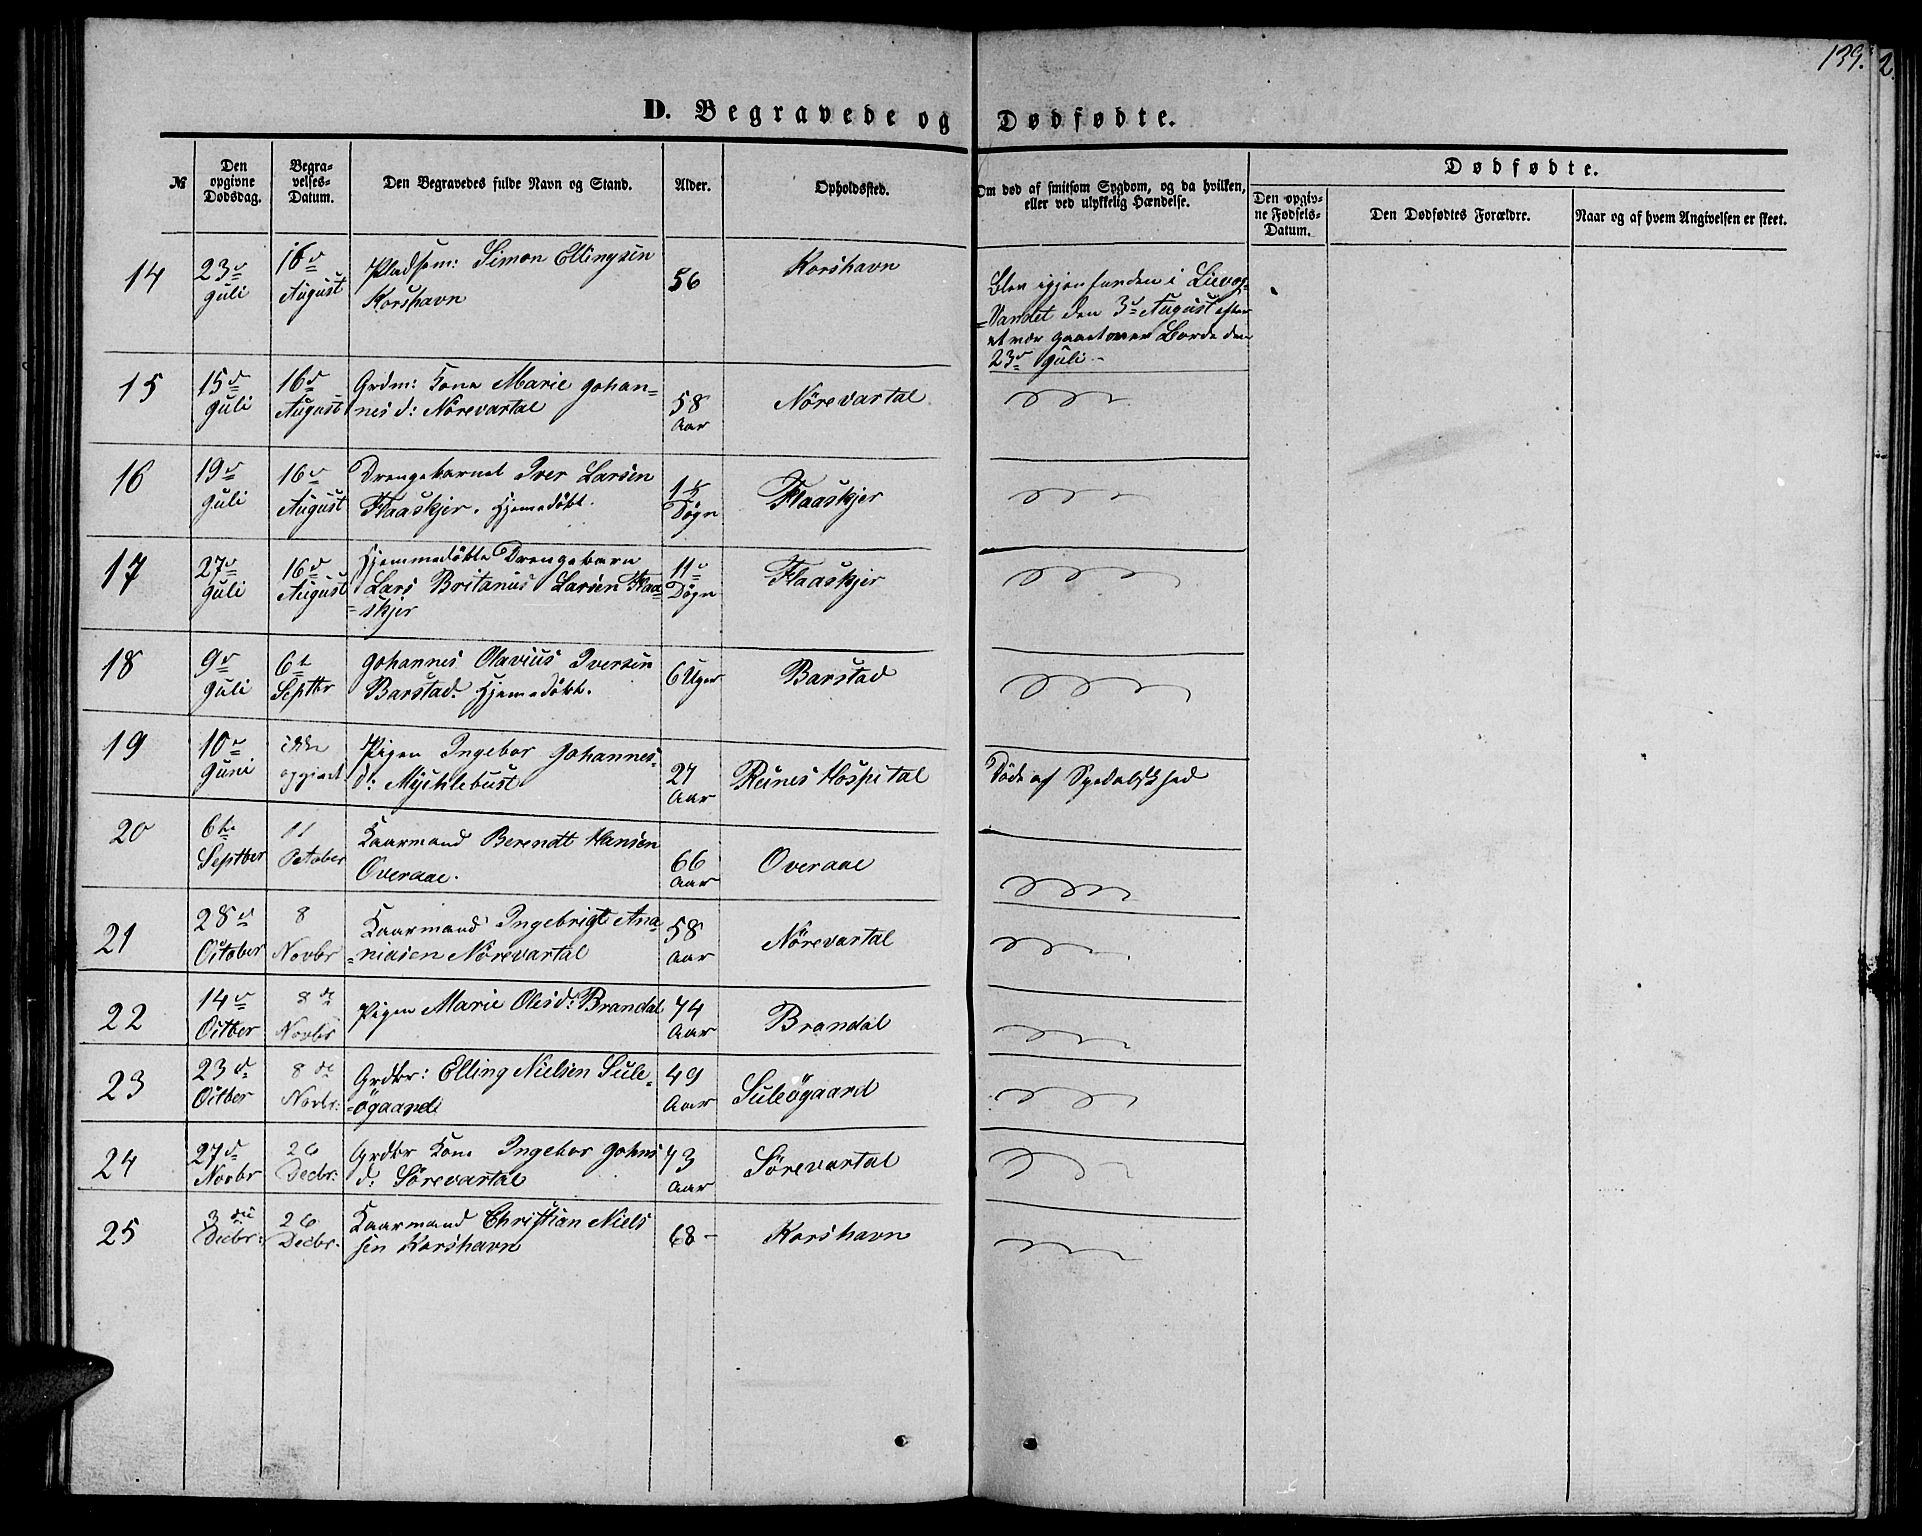 139. 2
D. Begravede og Dødfødte.
№ | Den opgivne Dødsdag. | Begravelses-Datum. | Den Begravedes fulde Navn og Stand. | Alder. | Opholdssted. | Om død af smitsom Sygdom, og da hvilken, eller ved ulykkelig Hændelse. | Dødfødte.
Den opgivne Fødsels-Datum. | Den Dødfødtes Forældre. | Naar og af hvem Angivelsen er skeet.
14 | 23d Juli | 16d August | Pladsem: Simon Ellingsen Korshavn | 56 | Korshavn | Blev igjenfunden i Vandet den 3d August efter at vær gaaet over Borde den 23d Juli
15 | 15d Juli | 16d August | Grdm: Kone Marie Johan=nesd: Nörevartal | 58 Aar | Nörevartal
16 | 19d Juli | 16d August | Drengebarnet Iver Larsen Flaaskjer. Hjemedöbt. | Dögn | Flaaskjer
17 | 27d Juli | 16d August | Hjemmedöbte Drengebarn Lars Britanus Larsen Flaa=skjer | 11 Dögn | Flaaskjer
18 | 9d Juli | 6t Septbr | Johannes Olavius Iversen Barstad. Hjemedöbt. | 6 Uger | Barstad
19 | 10d Juni | ikke opgivet | Pigen Ingebor Johannes=d: Myehlebust | 27 Aar | Reines Hospital | Döde af Spedalskhed
20 | 6te Septber | October | Kaarmand Berendt Hansen Overaae. | 66 Aar | Overaae
21 | 28d October | 8 Novbr | Kaarmand Ingebrigt Ana=niasen Nörevartal | 58 Aar | Nörevartal
22 | 14d Octber | 8de Novbr | Pigen Marie Olesd: Brandal | 74 Aar | Brandal
23 | 23d Octber | 8de Novbr: | Grdbr: Elling Nielsen Sule=ögaard | 49 Aar | Suleögaard
24 | 27d Novbr | 26 Decbr: | Grdbr Kone Ingebor Johns d: Sörevartal | 73 Aar | Sörevartal
25 | 3die Decbr: | 26 Decbr. | Kaarmand Christian Niels sen Korshavn | 68 - | Korshavn